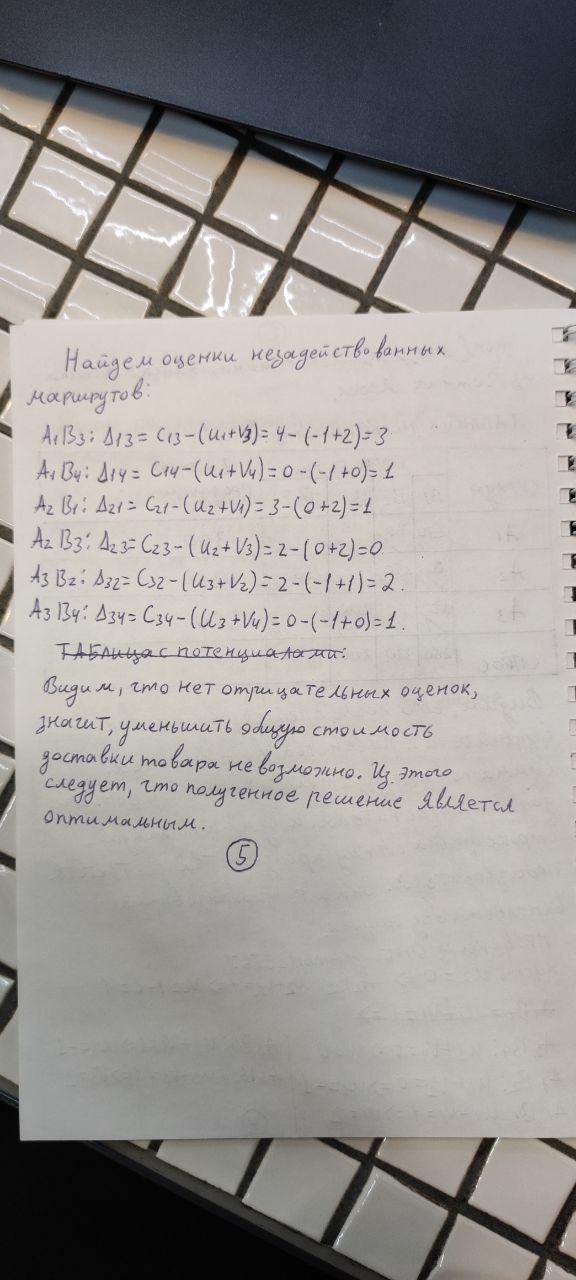 Найдем оценки незадействованных
маршрутов:
A₁B₃: Δ₁₃= C₁₃-(U₁+V₃)= 4-(-1+2)=3
A₁B₄: Δ₁₄= C₁₄-(U₁+V₄)=0-(-1+0)=1
A₂B₁: Δ₂₁= C₂₁-(U₂+V₁)=3-(0+2)=1
A₂B₃: Δ₂₃=C₂₃-(U₂+V₃)=2-(0+2)=0
A₃B₂: Δ₃₂=C₃₂-(U₃+V₂)=2-(-1+1)=2.
A₃B₄: Δ₃₄=C₃₄-(U₃+V₄)=0-(-1+0)=1.
Таблица с потенциалами:
Видим, что нет отрицательных оценок,
значит, уменьшить общую стоимость
доставки товара невозможно. Из этого
следует, что полученное решение является
оптимальным.
5